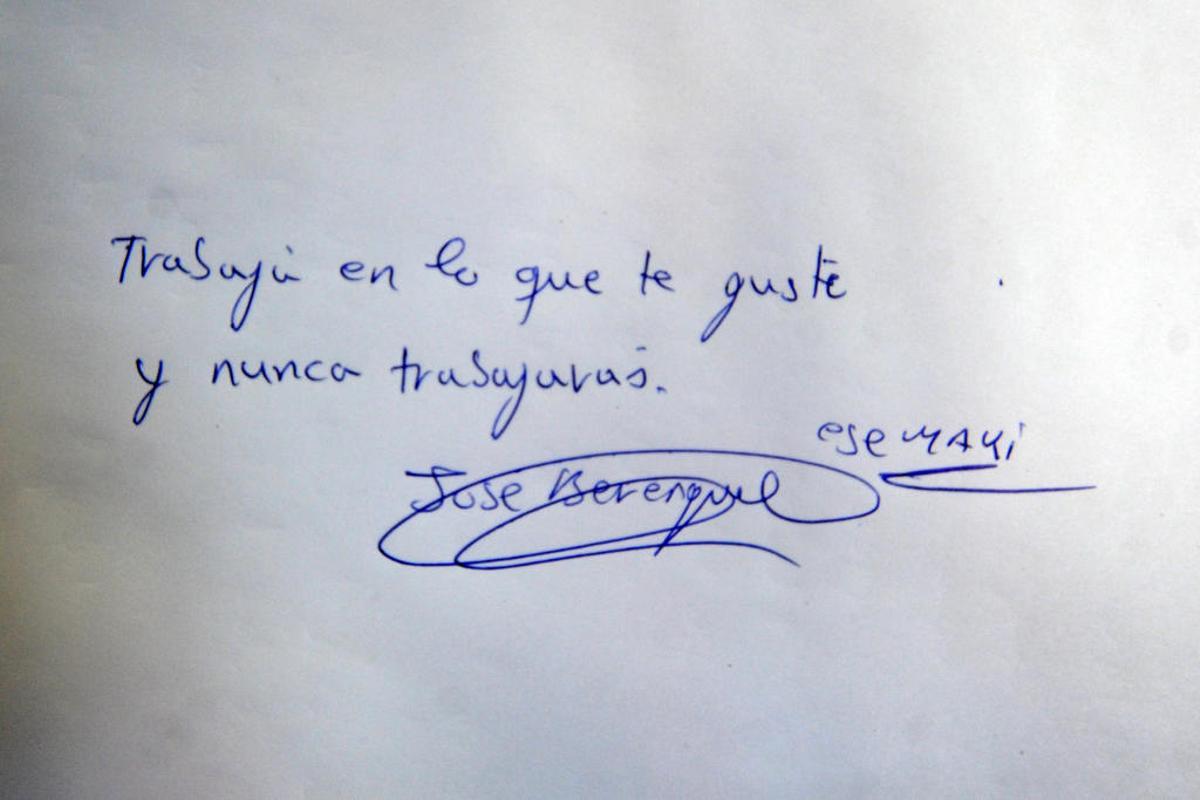 Trabaja en lo que te guste
y nunca trabajarás.
ese MAKI
Jose Berenguel